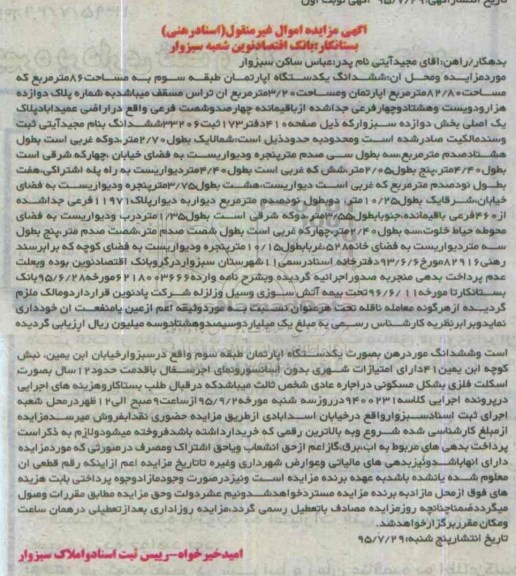 آگهی مزایده اموال غیرمنقول(اسنادرهنی)
بستانکار:بانک اقتصادنوین شعبه سبزوار
بدهکار/راهن:اقای مجیدآیتی نام پدر:عباس ساکن سبزوار
موردمزایده ومحل ان:ششدانگ یکدستگاه اپارتمان طبقه سوم به مساحت۸۶مترمربع که
مساحت۸۲/۸۰مترمربع اپارتمان ومساحت۳/۲۰مترمربع ان تراس مسقف میباشدبه شماره پلاک دوازده
هزارودویست وهشتادوچهارفرعی جداشده ازباقیمانده چهارصدوشصت فرعی واقع دراراضی عمیدابادپلاک
یک اصلی بخش دوازده سبزوارکه ذیل صفحه۴۱۰دفتر۱۷۲ثبت۳۳۲۰۶ششدانگ بنام مجیدآیتی ثبت
وسندمالکیت صادرشده است ومحدودبه حدودذیل است:شمالایک بطول۲/۷۰متر،دوکه غربی است بطول
هشتادصدم مترمربع،سه بطول سی صدم مترپنجره ودیواریست به فضای خیابان ،چهارکه شرقی است
بطول۴/۴۰متر،پنج بطول۲/۰۵متر،شش که غربی است بطول۴/۴۰متردیواریست به راه پله اشتراکی،هفت
بطول نودصدم مترمربع که غربی است دیواریست،هشت بطول۳/۷۵مترپنجره ودیواریست به فضای
خیابان،شرقایک بطول۱۰/۲۵متر، دوبطول نودصدم مترمربع دیواربه دیوارپلاک۱۱۹۷۱فرعی جداشده
از۴۶۰فرعی باقیمانده،جنوبابطول۳/۵۵متر،دوکه شرقی است بطول۱/۳۵متردرب ودیواریست به فضای
محوطه حیاط خلوت،سه بطول۲/۴۰متر،چهارکه غربی است بطول شصت صدم متر،شصت صدم متر،پنج بطول
سه متردیواریست به فضای خانه۵۲۸،غربابطول۱۰/۱۵مترپنجره ودیواریست به فضای کوچه که برابرسند
رهنی۸۲۹۱۶مورخ۹۳/۶/۶دفترخانه اسنادرسمی۱۱شهرستان سبزواردرگروبانک اقتصادنوین بوده وبعلت
عدم پرداخت بدهی منجربه صدوراجرائیه گردیده وبشرح نامه وارده۶۲۱۸۰۰۳۶۶۶مورخه۹۵/۶/۲۸بانک
بستانکارتا مورخه۹۶/۶/۱۱تحت بیمه آتش سوزی وسیل وزلزله شرکت پادنوین قرارداردومالک ملزم
گردیده ازهرگونه معامله ناقله تحت هرعنوان نسبت به موردوثیقه اعم ازعین یامنفعت ان خودداری
نمایدوبرابرنظریه کارشناس رسمی به مبلغ یک میلیاردوسیصدوهشتادوسه میلیون ریال ارزیابی گردیده
است وششدانگ موردرهن بصورت یکدستگاه اپارتمان طبقه سوم واقع درسبزوارخیابان ابن یمین، نبش
کوچه ابن یمین۴۱دارای امتیازات شهری بدون آسانسورونمای اجرسفال باقدمت حدود۱۲سال بصورت
اسکلت فلزی بشکل مسکونی دراجاره عادی شخص ثالث میباشدکه درقبال طلب بستانکاروهزینه های اجرایی
درپرونده اجرایی کلاسه۹۴۰۰۲۳۱درروزسه شنبه مورخه۹۵/۹/۲ازساعت۹صبح الی۱۲ظهردرمحل شعبه
اجرای ثبت اسنادسبزوارواقع درخیابان اسدابادی ازطریق مزایده حضوری نقدابفروش میرسدمزایده
ازمبلغ کارشناسی شده شروع وبه بالاترین رقمی که خریدارداشته باشدفروخته میشودولازم به ذکراست
پرداخت بدهی های مربوط به اب،برق،گازاعم ازحق انشعاب ویاحق اشتراک ومصرف درصورتی که موردمزایده
دارای انهاباشدونیزبدهی های مالیاتی وعوارض شهرداری وغیره تاتاریخ مزایده اعم ازاینکه رقم قطعی ان
معلوم شده یانشده باشدبه عهده برنده مزایده است ونیزدرصورت وجودمازادوجوه پرداختی بابت هزینه
های فوق ازمحل مازادبه برنده مزایده مستردخواهدشدونیم عشردولت وحق مزایده مطابق مقررات وصول
میگرددضمناچنانچه روزمزایده مصادف باتعطیل رسمی گردد،مزایده روزاداری بعدازتعطیلی درهمان ساعت
ومکان مقرربرگزارخواهدشد.
تاریخ انتشار:پنج شنبه:۹۵/۷/۲۹
امیدخیرخواه-رییس ثبت اسنادواملاک سبزوار